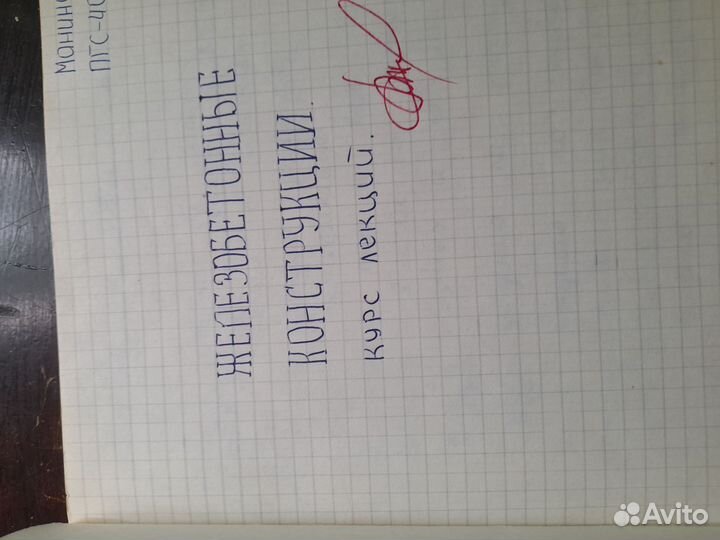 ПГС-40
ЖЕЛЕЗОБЕТОННЫЕ
КОНСТРУКЦИИ.
КУРС ЛЕКЦИЙ.
Avito